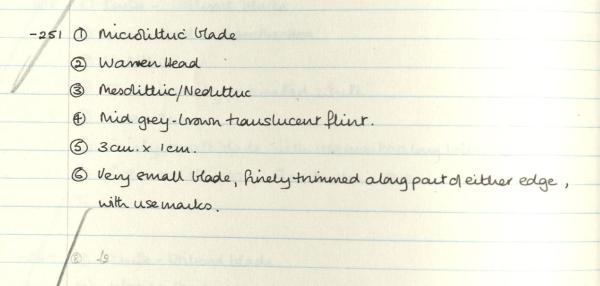 -251 ① Microlithic blade
② Warren Head
③ Mesolithic/Neolithic
④ Mid grey-brown translucent flint.
⑤ 3cm. x 1cm.
⑥ Very small blade, finely trimmed along part of either edge,
with use marks.
⑧ 19